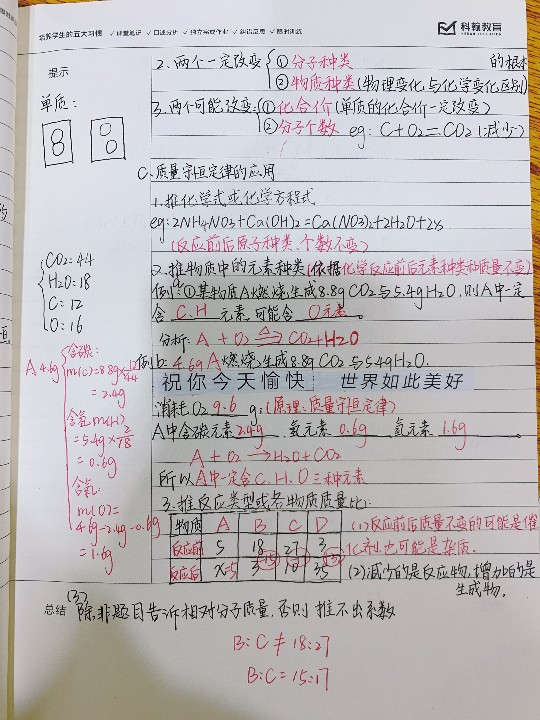 培养学生的五大习惯 ✓课堂笔记 ✓口述分析 ✓独立完成作业 ✓纠错反思 ✓限时训练
科翰教育
提示
2.两个一定改变 ①分子种类 的根本
②物质种类(物理变化与化学变化区别)
单质:
3.两个可能改变: ①化合价(单质的化合价一定改变)
②分子个数 eg: C+O2=CO2(减少)
8
0
0
C.质量守恒定律的应用
1.推化学式或化学方程式
eg:2NH4NO3+Ca(OH)2=Ca(NO3)2+2H2O+2x
(反应前后原子种类、个数不变)
CO2=44
H2O:18
C=12
O:16
2.推物质中的元素种类(依据化学反应前后元素种类和质量不变)
例: ①某物质A燃烧,生成8.8g CO2与5.4g H2O,则A中一定
含 C.H 元素,可能含 O元素.
分析: A + O2 → CO2+H2O
例b: 4.6g A燃烧,生成8.8g CO2与5.4g H2O.
祝你今天愉快 世界如此美好
消耗O2 9.6 g:(原理:质量守恒定律)
A中含碳元素2.4g、氢元素 0.6g 氧元素 1.6g
A + O2 → H2O+CO2
所以A中一定含C.H.O三种元素
A 4.6g
含碳:
m(C)=8.8g×12/44
=2.4g
含氢:m(H)
=5.4g×2/18
=0.6g
含氧:
m(O)=
4.6g-2.4g-0.6g
=1.6g
3.推反应类型或各物质质量比:
物质 A B C D
反应前 5 18 27 3
反应后 x=5 3 10 35
(1)反应前后质量不变的可能是催
化剂,也可能是杂质.
(2)减少的是反应物,增加的是
生成物.
总结
(3)除非题目告诉相对分子质量,否则推不出系数
B:C≠18:27
B:C=15:17